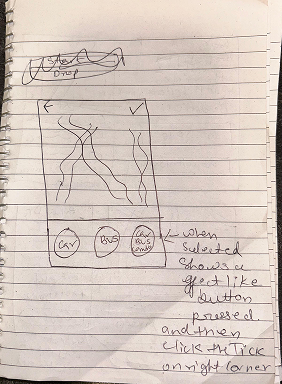 Drop
Car
Bus
Car
Bus
when
selected
shows a
effect like
button
pressed
and then
click the Tick
on right corner